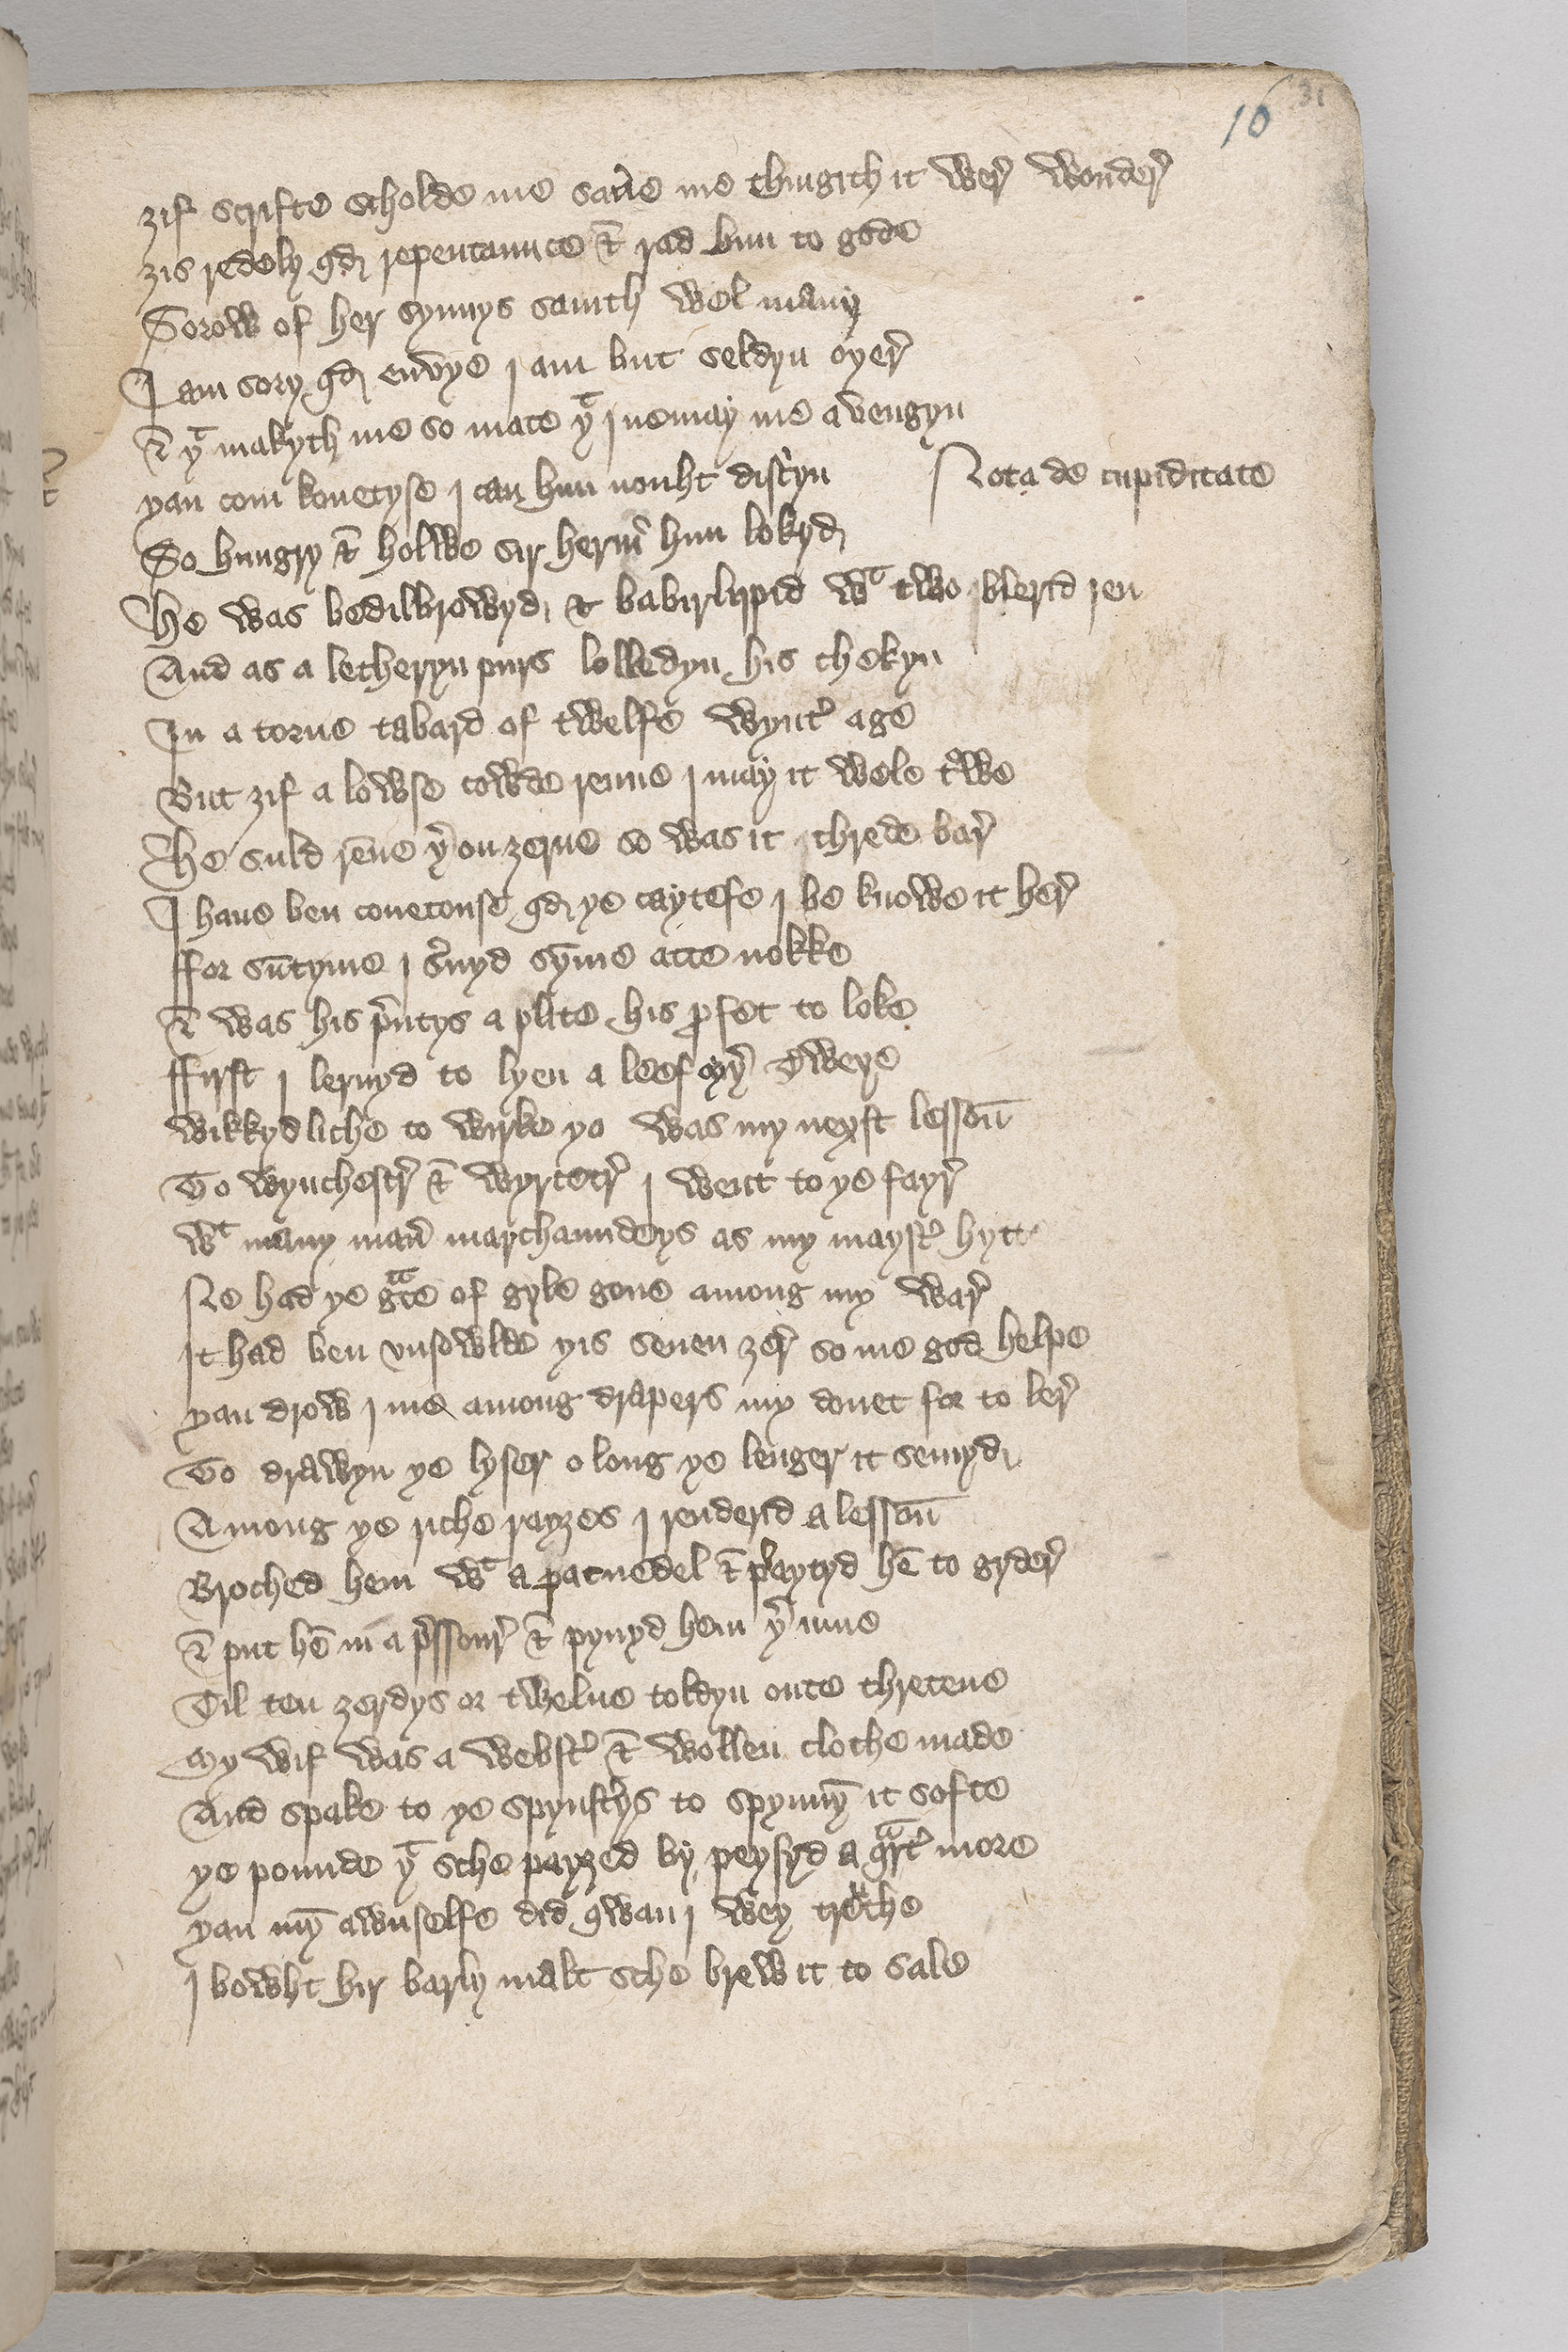 16 31
zif scrifte scholde me saũe me thingith it wer̉ wonder̉
zis redely qd repentaunce & rad him to gode
Sorow of her synnys saũith wel many
I am sory qd envye j am but seldyn oyer̉
& yͭ makyth me so mate yͭ j ne may me a vengyn
yan com kouetyse j can him nouht discͥyn
Nota de cupiditate
So hungry & holwe sir heruỷ him lokyd
he was bedilbrowyd & babirlippid wͭ two blerid ien
And as a letheryn purs lolledyn his chekyn
In a torne tabard of twelfe wyntˀ age
But zif a lowse cowde renne j may it wele tͦwe
He suld rēne yˀ on zerne so was it threde bar̉
I haue ben couetouse qd ye caytefe j be knowe it her̉
ffor sūtyme j sˀuyd syme atte nokke
& was his pˀntys a plite his ꝓfet to loke
ffirst j lernyd to lyen a leef oyˀ tweye
wikkydliche to wirke yo was my neyst lessoū
To wynchestr̉ & wyrcetr̉ j went to ye fayr̉
wͭ many manˀ marchaundeys as my maystˀ hytt
Ne had ye gͣce of gyle gone among my war̉
it had ben vnsowlde yis seuen zer̉ so me god helpe
yan drow j me among drapers my donet for to ler̉
To drawyn ye lyser o long ye lenger it semyd
Among ye riche rayzes j renderid a lessoū
Broched hem wͭ a pacnedel & playtyd hē to gyder̉
& put hē in a pˀssour̉ & pynyd hem yˀ inne
Til ten zerdys or twelue toldyn oute threttene
My wif was a webstˀ & wollen clothe made
And spake to ye spynstˀys to spynnyˉ it softe
ye pounde yͭ sche payzed by peysyd a qͣrtˀ more
yan myˉ awnselfe did qwan j wey trewthe
j bowht hir barly malt sche brew it to sale